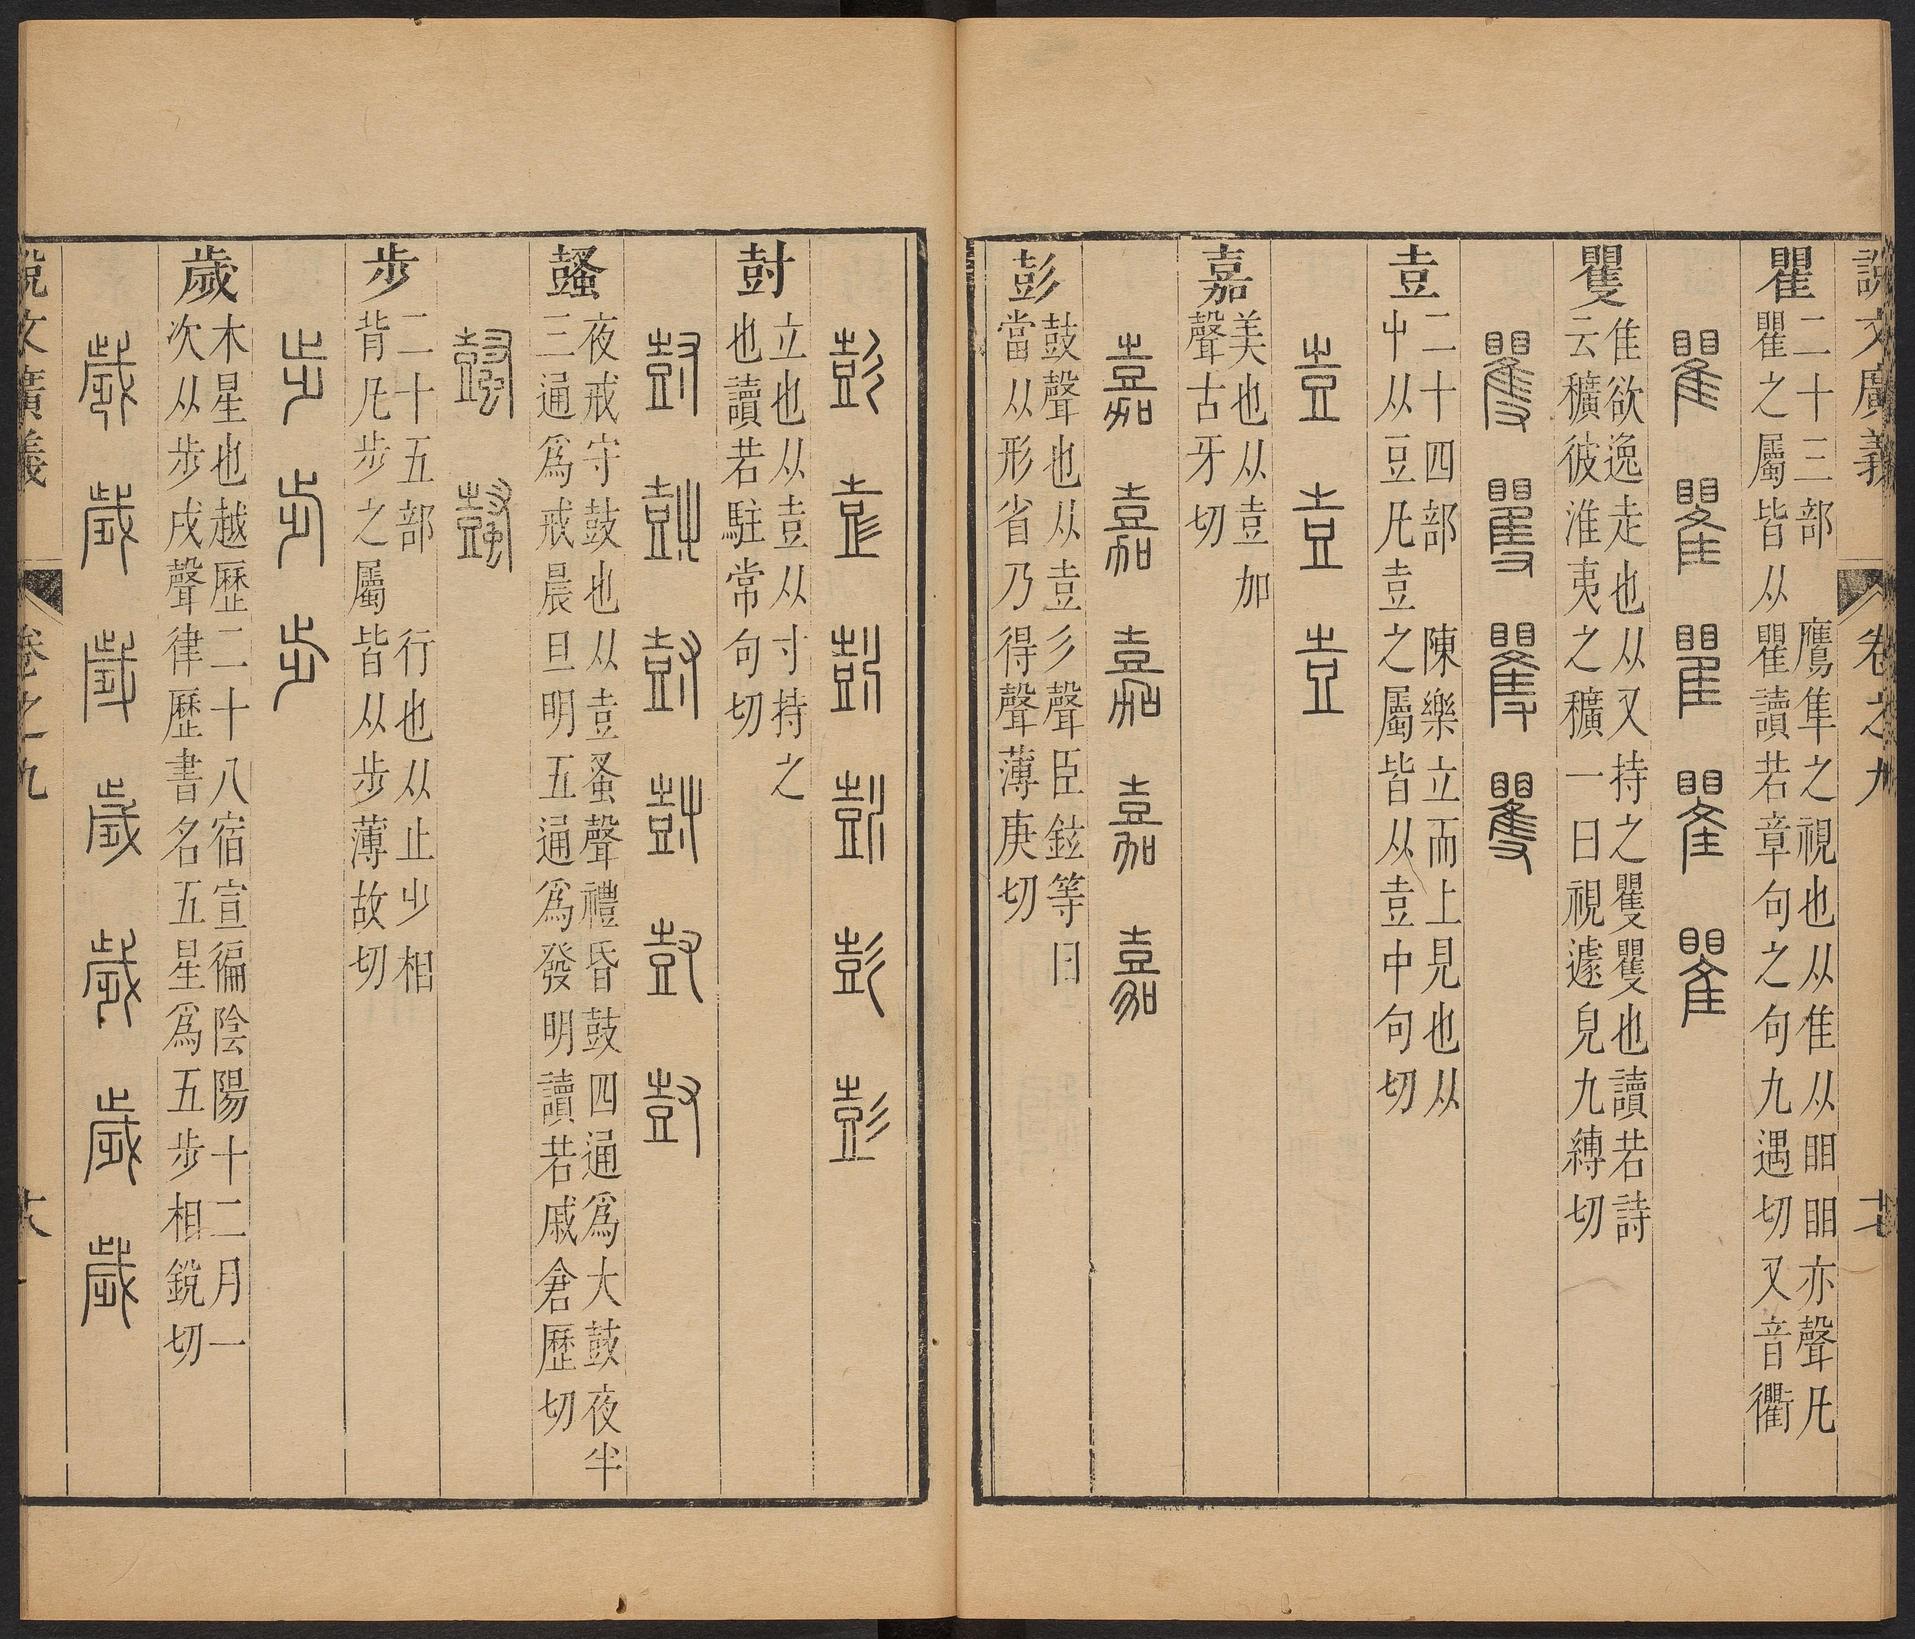 說文廣義 卷之九 十七
瞿 二十三部 鷹隼之視也从隹从䀠䀠亦聲凡
瞿之屬皆从瞿讀若章句之句九遇切又音衢
瞿 瞿 瞿 瞿 瞿
矍 隹欲逸走也从又持之矍矍也讀若詩
云穬彼淮夷之穬一曰視遽皃九縛切
矍 矍 矍 矍
壴 二十四部 陳樂立而上見也从
屮从豆凡壴之屬皆从壴中句切
壴 壴 壴
嘉 美也从壴加
聲古牙切
嘉 嘉 嘉 嘉 嘉
彭 鼓聲也从壴彡聲臣鉉等曰
當从形省乃得聲薄庚切
彭 彭 彭 彭 彭 彭
尌 立也从壴从寸持之
也讀若駐常句切
尌 尌 尌 尌 尌 尌
𧯞 夜戒守鼓也从壴蚤聲禮昏鼓四通爲大鼓夜半
三通爲戒晨旦明五通爲發明讀若戚倉歷切
𧯞 𧯞
步 二十五部 行也从止𣥂相
背凡步之屬皆从步薄故切
步 步 步
歲 木星也越歷二十八宿宣徧陰陽十二月一
次从步戌聲律歷書名五星爲五步相銳切
歲 歲 歲 歲 歲 歲 歲
說文廣義 卷之九 十八